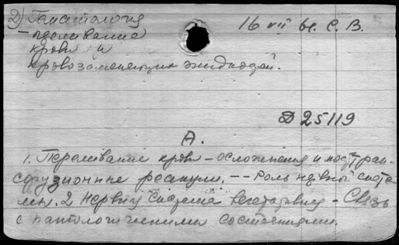 2) Гематология
16 VII 61. С. В.
– переливание
крови и
кровозаменяющих жидкостей.
Д 25119
А.
1. Переливание крови – осложнения и посттран-
сфузионные реакции. – – роль нервной систе-
мы. 2. Нервная система вегетативн. – Связь
с патологическими состояниями.